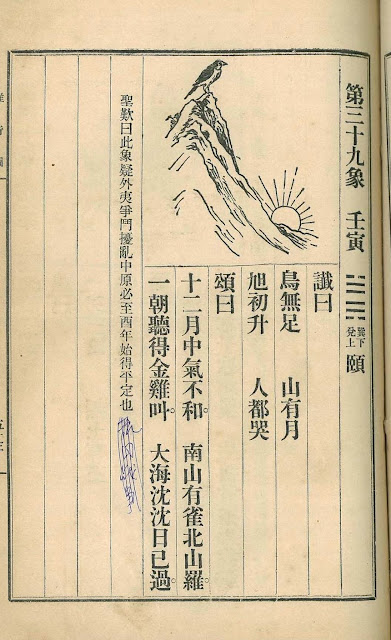 第三十九象 壬寅 巽下 兌上 頤
讖曰
鳥無足 山有月
旭初升 人都哭
頌曰
十二月中氣不和。 南山有雀北山羅。
一朝聽得金雞叫 大海沈沈日已過。
聖歎曰此象疑外夷爭鬥擾亂中原必至酉年始得平定也